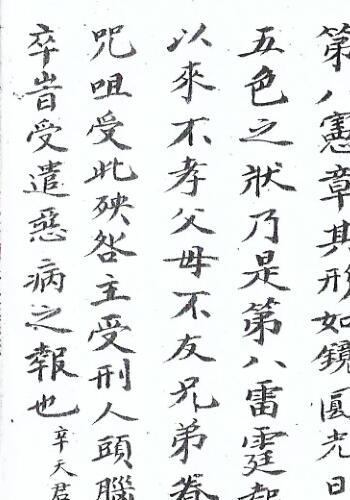 第八憲章其形如鏡光
五色之狀乃是第八雷霆
以來不孝父母不友兄弟眷
咒咀受此殃咎主受刑人頭腦
卒旹受遣惡病之報也 辛天君